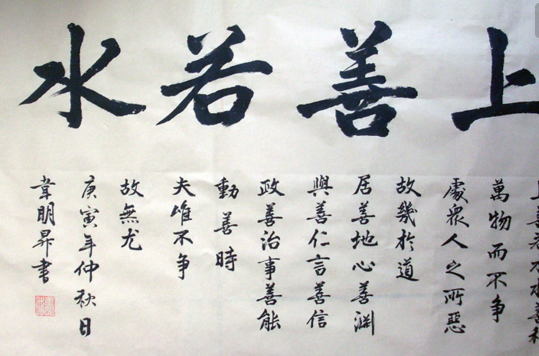 上善若水
上善若水水善利
萬物而不争
處衆人之所惡
故幾於道
居善地心善渊
與善仁言善信
政善治事善能
動善時
夫唯不争
故無尤
庚寅年仲秋日
韋明昇書